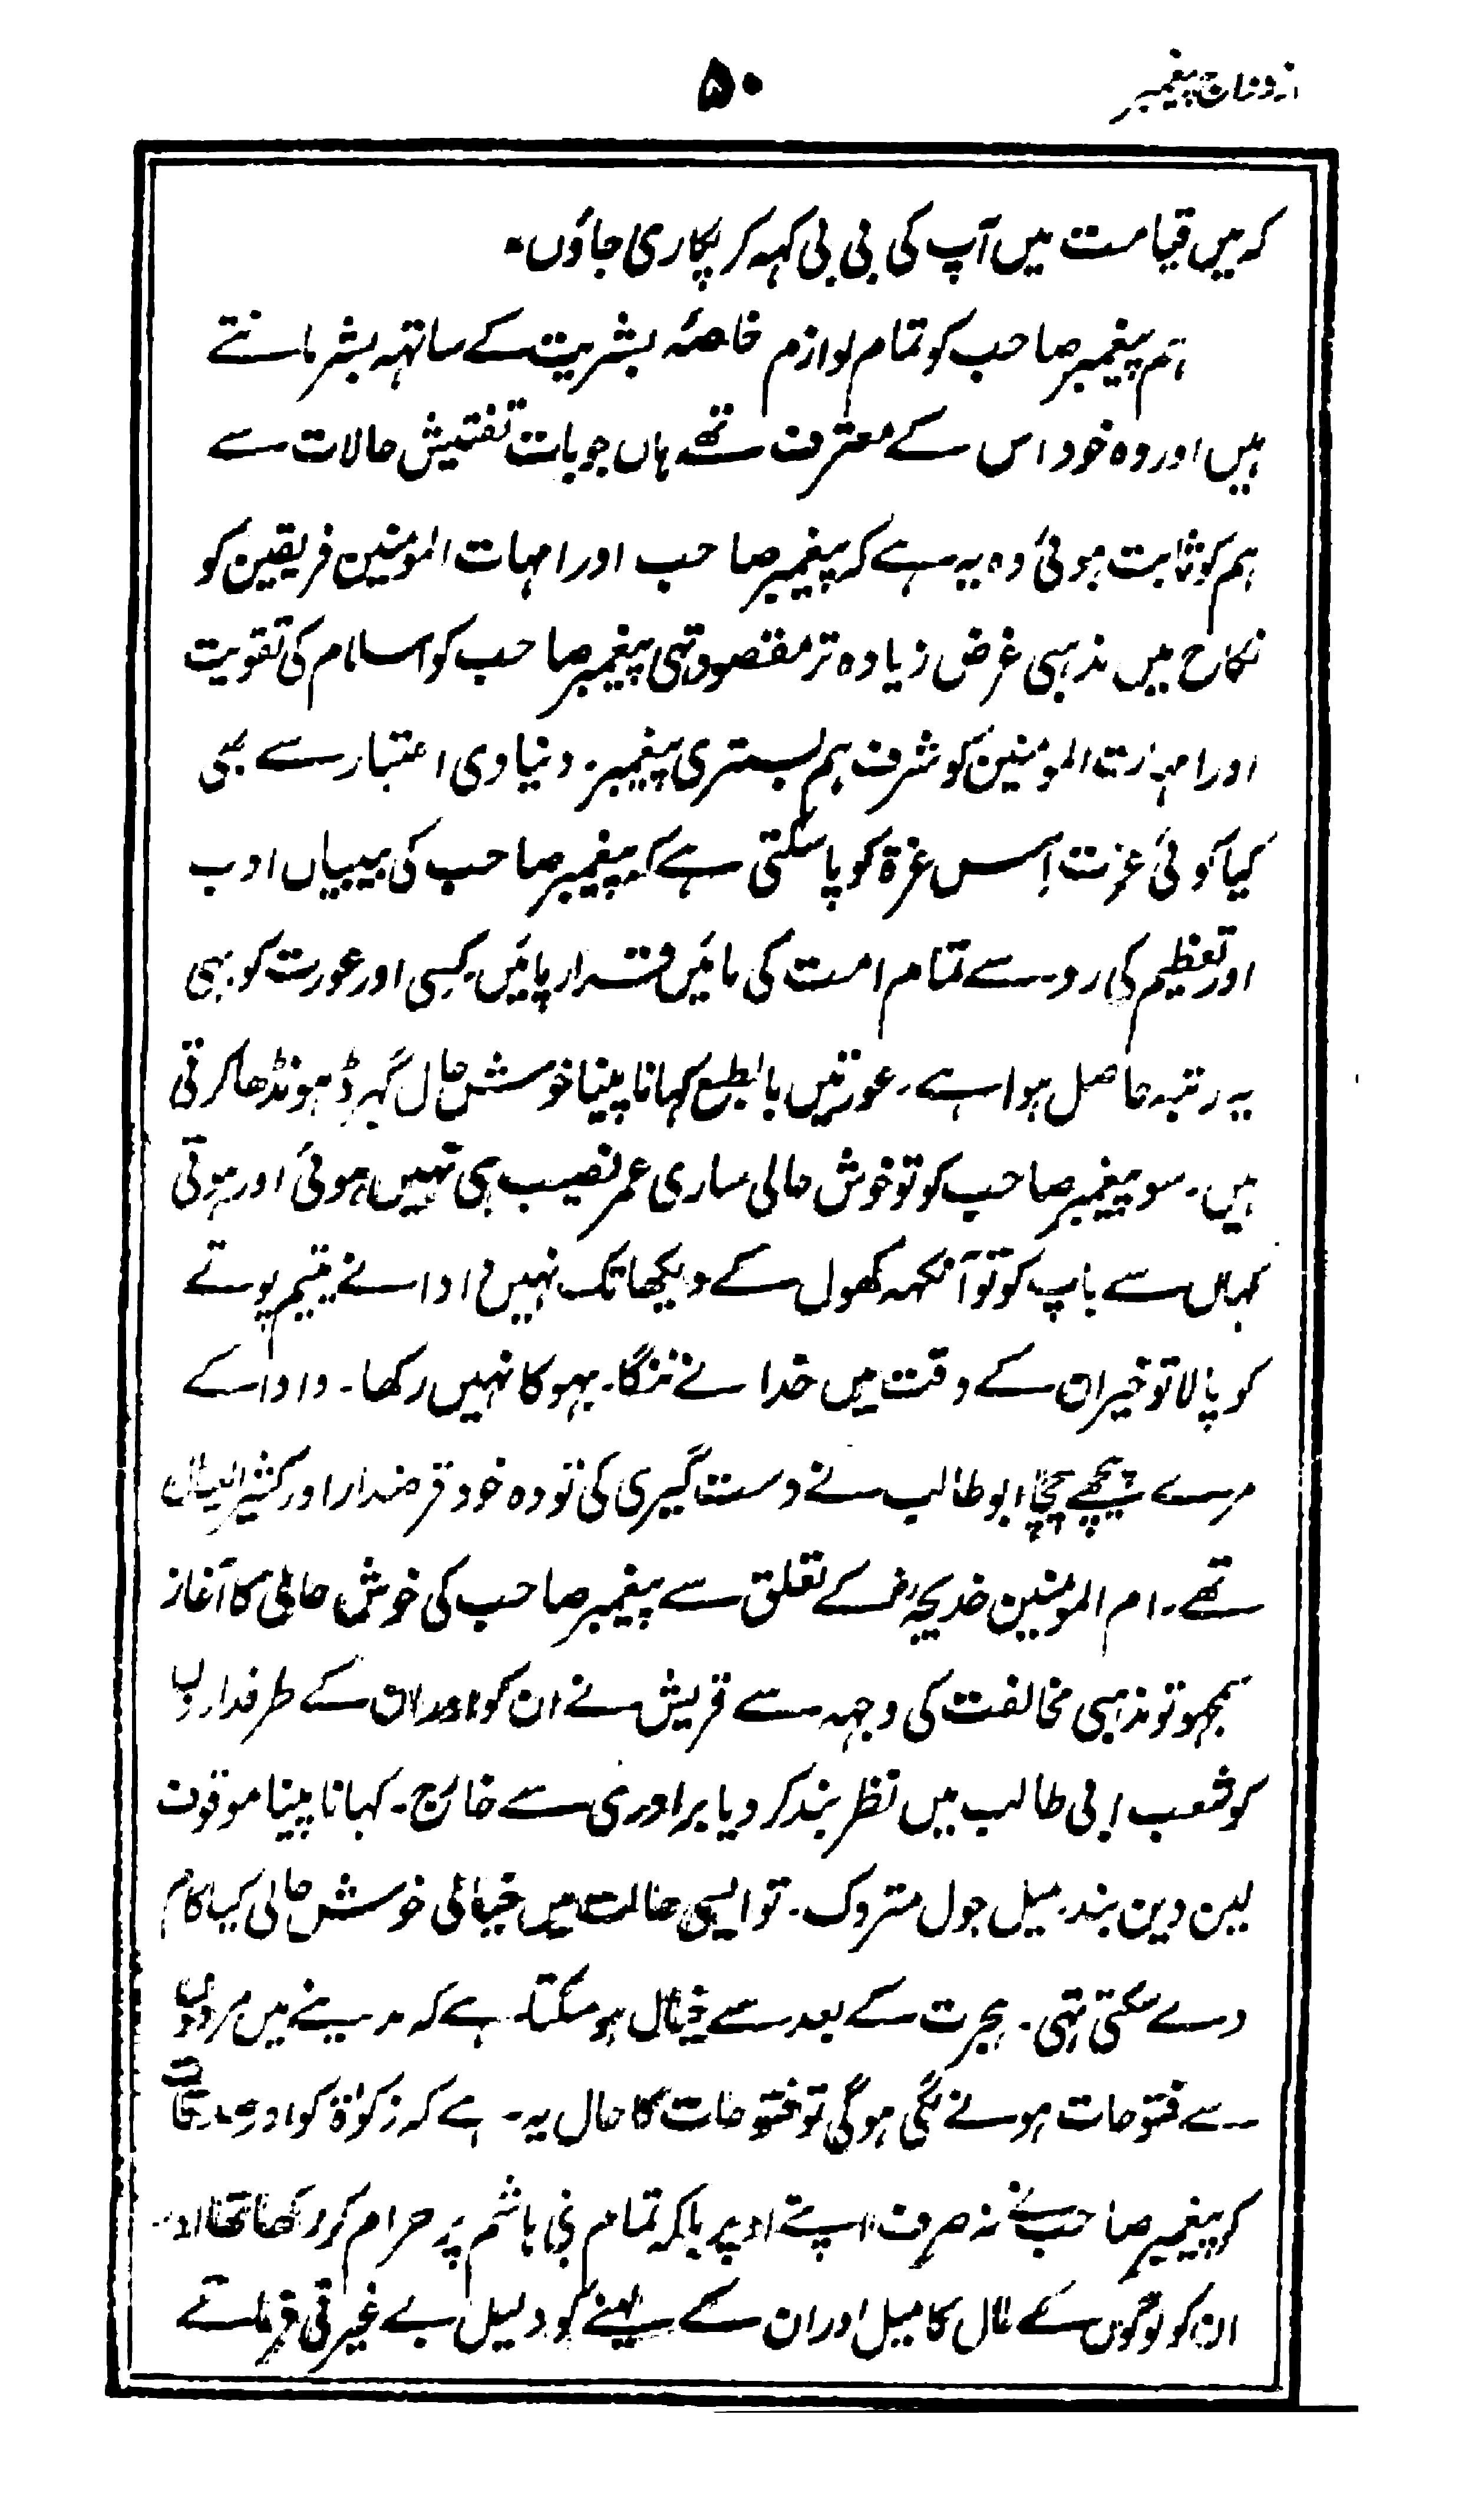 ازدواج پیغمبر
۵۰
کہ میں قیامت میں آپ کی بی بی کہہ کر پکاری جاؤں۔
ہم پیغمبر صاحب کو تمام لوازم خاصۂ بشریت کے ساتہہ بشر مانتے
ہیں اور وہ خود اس کے معترف تھے ہاں جو بات تفتیش حالات سے
ہم کو ثابت ہوئی وہ یہ ہے کہ پیغمبر صاحب اور امہات المؤمنین فریقین کو
نکاح میں مذہبی غرض زیادہ تر مقصود تہی پیغمبر صاحب کو اسلام کی تقویت
اور امہات المؤمنین کو شرف ہم بستری پیغمبر۔ دنیاوی اعتبار سے بہی
کیا کوئی عزت اِس عزۃ کو پاسکتی ہے کہ پیغمبر صاحب کی بیبیاں ادب
اور تعظیم کی رو سے تمام امت کی مائیں قرار پائیں۔ کسی اور عورت کو بہی
یہ رتبہ حاصل ہوا ہے۔ عورتیں بالطبع کہانا پینا خوش حال گہر ڈہونڈھا کرتی
ہیں۔ سو پیغمبر صاحب کو تو خوش حالی ساری عمر نصیب ہی نہیں ہوئی اور ہوتی
کہاں سے باپ کو تو آنکہہ کھول کے دیکھا تک نہیں دادا نے یتیم پوتے
کو پالا تو خیر ان کے وقت میں خدا نے ننگا۔ بہوکا نہیں رکھا۔ دادا کے
مرے پیچھے چچا ابوطالب نے دست گیری کی تو وہ خود قرضدار اور کثیر العیال
تھے۔ ام المؤمنین خدیجہؓ کے تعلق سے پیغمبر صاحب کی خوش حالی کا آغاز
سمجہو تو مذہبی مخالفت کی وجہہ سے قریش نے ان کو اور ان کے طرفداروں
کو شعب ابی طالب میں نظر بند کر دیا برادری سے خارج۔ کہانا پینا موقوف
لین دین بند۔ میل جول متروک۔ تو ایسی حالت میں خیالی خوش حالی کیا کام
دے سکتی تہی۔ ہجرت کے بعد سے خیال ہو سکتا ہے کہ مدینے میں
سے فتوحات ہونے لگی ہوگی تو فتوحات کا حال یہ ہے کہ زکوٰۃ کو اور صدقات
کو پیغمبر صاحب نے نہ صرف اپنے اوپر بلکہ تمام بنی ہاشم پر حرام کر رکھا تھا اور
ان کو لوگوں کے مال کا میل اور ان کے لینے کو دلیل بے غیرتی فرماتے